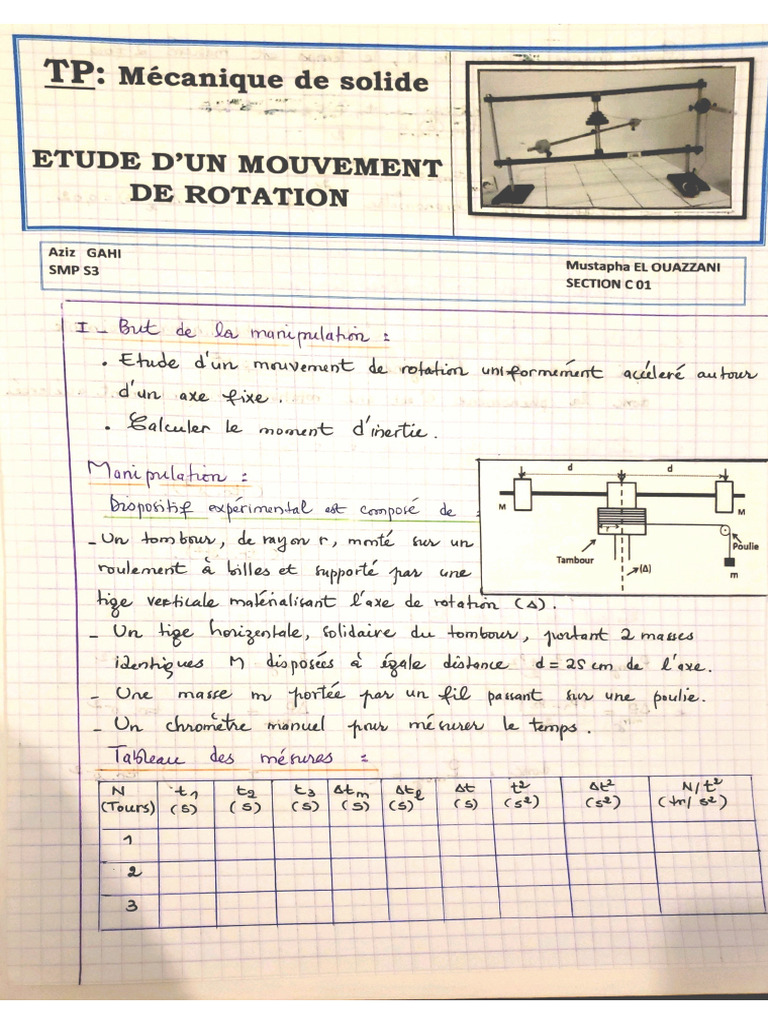 TP: Mécanique de solide
ETUDE D'UN MOUVEMENT
DE ROTATION
Aziz GAHI
SMP S3
Mustapha EL OUAZZANI
SECTION C 01
I - But de la manipulation :
• Etude d'un mouvement de rotation uniformément accéleré autour
d'un axe fixe.
• Calculer le moment d'inertie.
Manipulation :
Dispositif expérimental est composé de :
- Un tombour, de rayon r, monté sur un
roulement à billes et supporté par une
tige verticale matérialisant l'axe de rotation (Δ).
- Un tige horizentale, solidaire du tombour, portant 2 masses
identiques M disposées à égale distance d = 25 cm de l'axe.
- Une masse m portée par un fil passant sur une poulie.
- Un chromètre manuel pour mésurer le temps.
d d
M M
r
Tambour
(Δ)
Poulie
m
Tableau des mésures :
N t1 t2 t3 Δtm Δtl Δt t² Δt² N/t²
(Tours) (s) (s) (s) (s) (s) (s) (s²) (s²) (tr/s²)
1
2
3